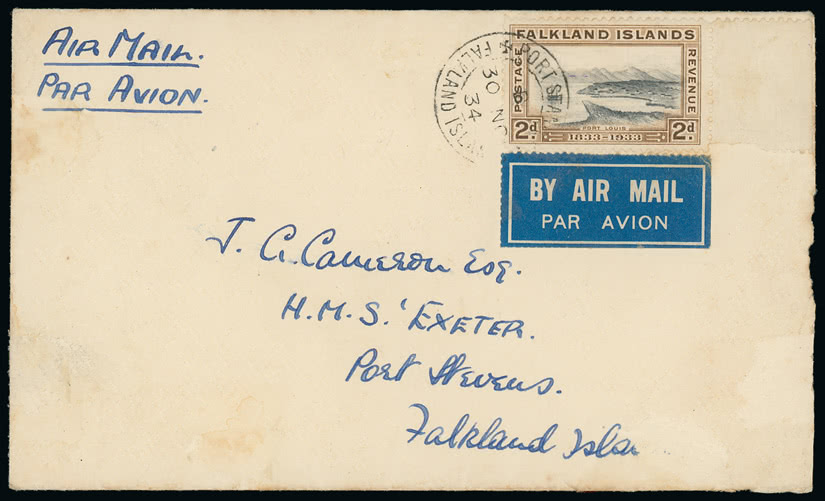 AIR MAIL.
PAR AVION.
FALKLAND ISLANDS
POSTAGE
REVENUE
PORT LOUIS
2d. 1833-1933 2d.
PORT STA
30 NO
34
FALKLAND ISLA
BY AIR MAIL
PAR AVION
J. G. Cameron Esq.
H.M.S. 'EXETER.
Port Stevens.
Falkland Islan